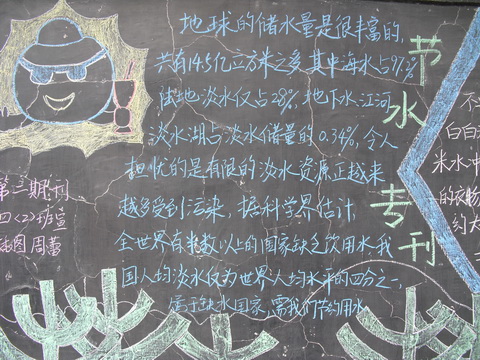 地球的储水量是很丰富的,
共有14.5亿立方米之多.其中海水占97.%
陆地淡水仅占2.8%.地下水江河
淡水湖占淡水储量的0.34%,令人
担忧的是有限的淡水资源正越来
越多受到污染,据科学界估计,
全世界有半数以上的国家缺乏饮用水.我
国人均淡水仅为世界人均水平的四分之一,
属于缺水国家,需我们节约用水
节水专刊
第三期刊
四<2>班宣
插图周蕾
不
白白
米水中
的衣物
约大